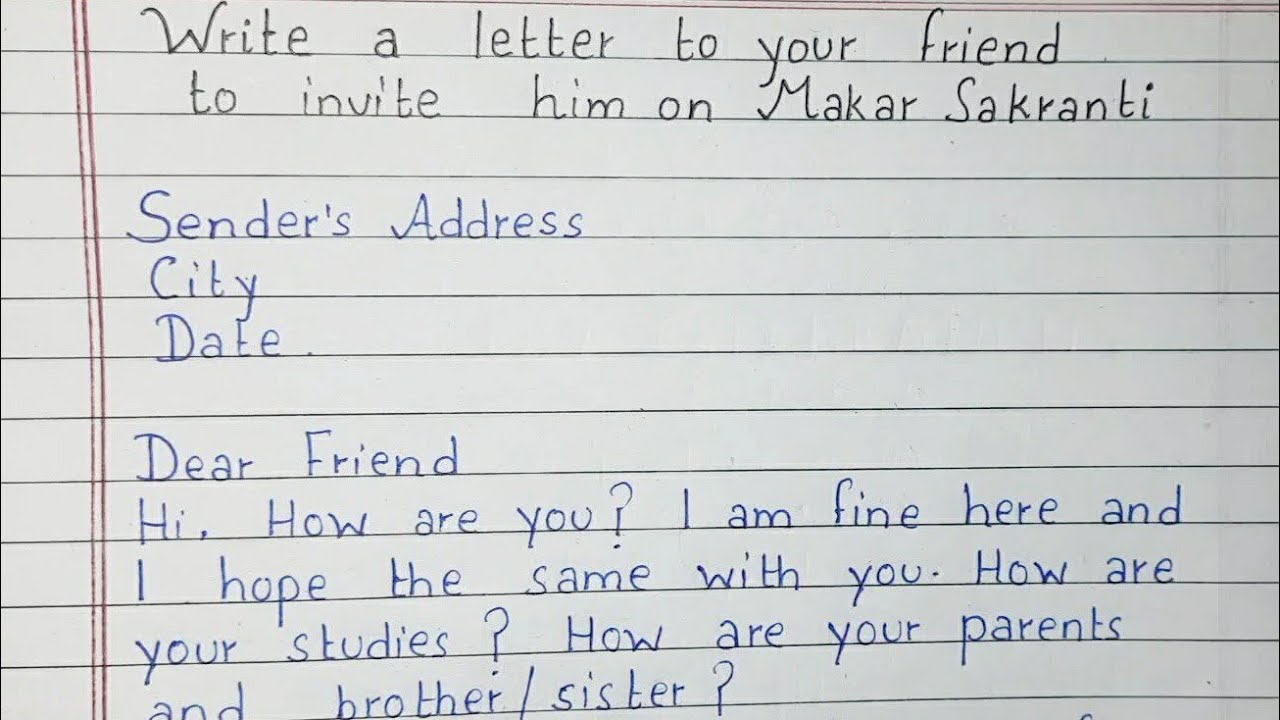 Write a letter to your friend
to invite him on Makar Sakranti
Sender's Address
City
Date.
Dear Friend
Hi, How are you? I am fine here and
I hope the same with you. How are
your studies? How are your parents
and brother/sister?